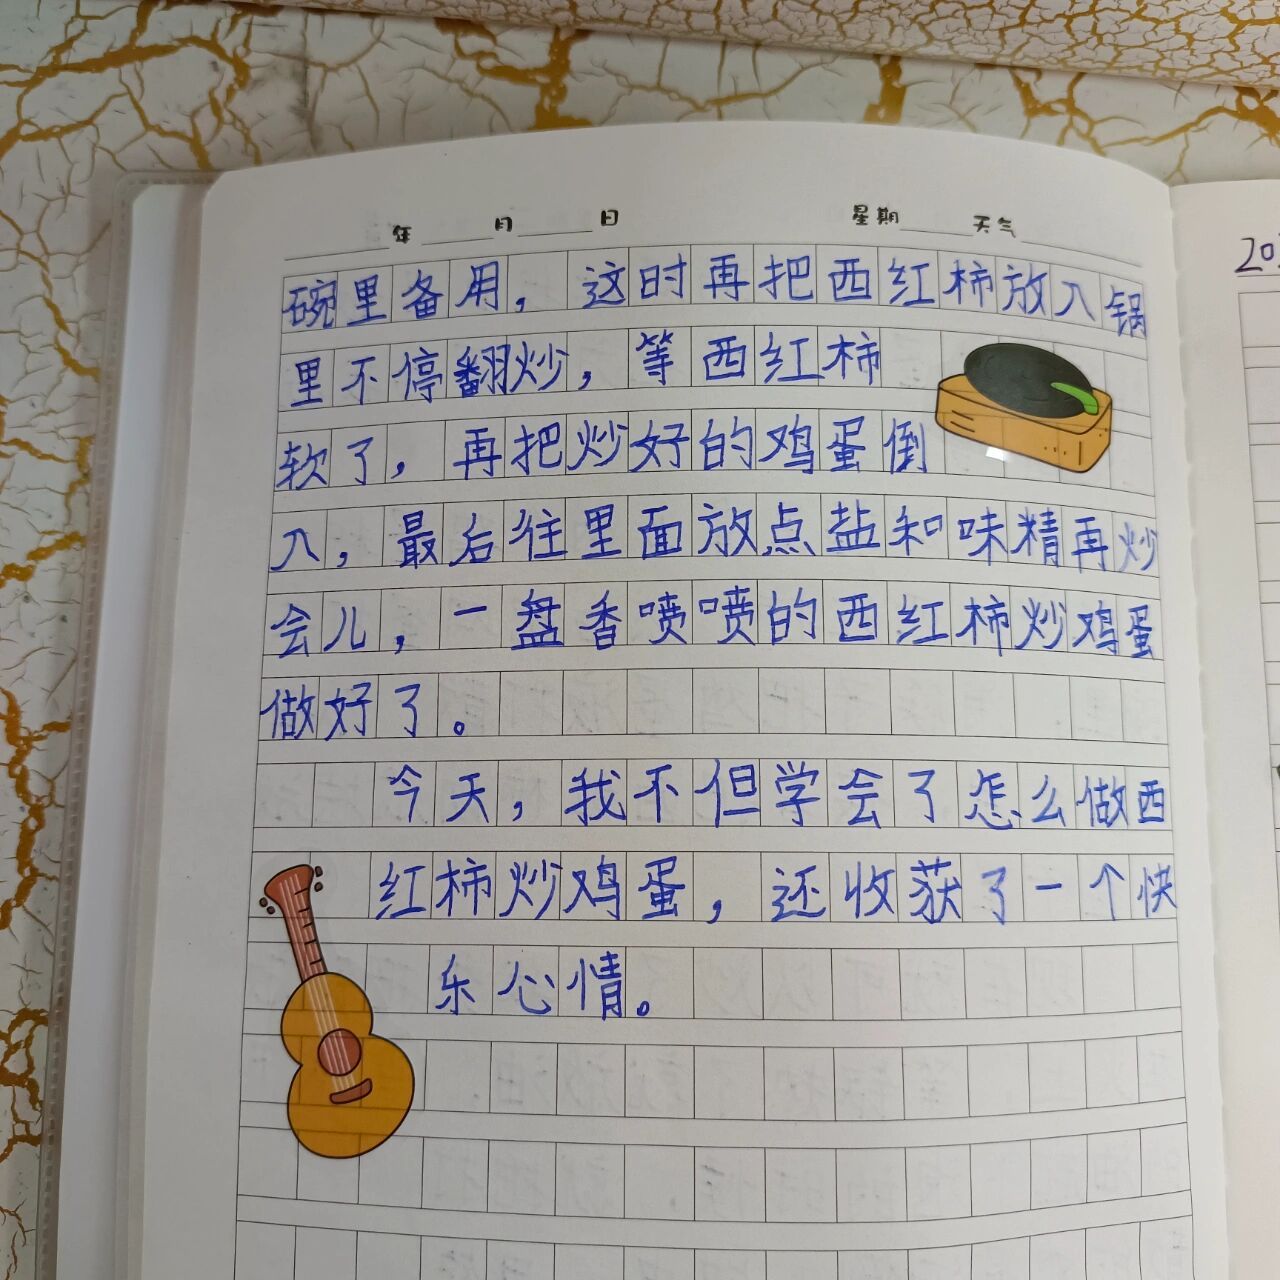 年 月 日 星期 天气
碗里备用，这时再把西红柿放入锅
里不停翻炒，等西红柿
软了，再把炒好的鸡蛋倒
入，最后往里面放点盐和味精再炒
会儿，一盘香喷喷的西红柿炒鸡蛋
做好了。
今天，我不但学会了怎么做西
红柿炒鸡蛋，还收获了一个快
乐心情。